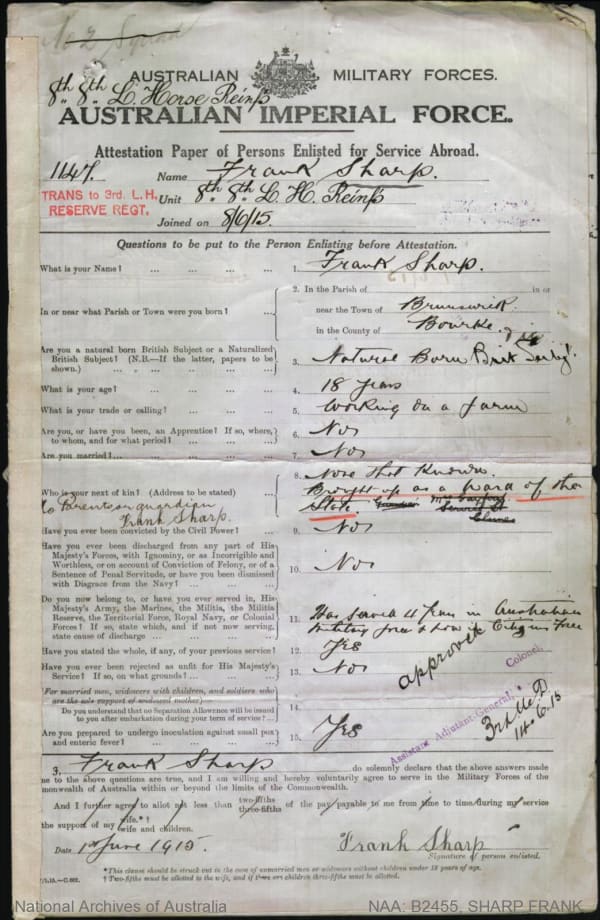 No 2 Squad
AUSTRALIAN MILITARY FORCES.
8th 8th L. Horse Reinfs
AUSTRALIAN IMPERIAL FORCE.
Attestation Paper of Persons Enlisted for Service Abroad.
1147. Name Frank Sharp.
TRANS to 3rd. L.H.
RESERVE REGT.
Unit 8th 8th L. H. Reinfs
Joined on 8/6/15.
Questions to be put to the Person Enlisting before Attestation.
What is your Name? ... ... ... ... 1. Frank Sharp.
In or near what Parish or Town were you born? ... 2. In the Parish of in or
near the Town of Brunswick
in the County of Bourke
Are you a natural born British Subject or a Naturalized
British Subject? (N.B.—If the latter, papers to be
shown.) ... ... ... ... 3. Natural Born Brit Subj.
What is your age? ... ... ... ... 4. 18 years
What is your trade or calling? ... ... ... 5. Working on a farm
Are you, or have you been, an Apprentice? If so, where,
to whom, and for what period? ... ... 6. No
Are you married? ... ... ... ... 7. No
Who is your next of kin? (Address to be stated) ... 8. None that known.
Brought up as a ward of the
State Guardian Mrs
Street
Clunes
Parents or guardian
Frank Sharp.
Have you ever been convicted by the Civil Power? ... 9. No
Have you ever been discharged from any part of His
Majesty's Forces, with Ignominy, or as Incorrigible and
Worthless, or on account of Conviction of Felony, or of a
Sentence of Penal Servitude, or have you been dismissed
with Disgrace from the Navy? ... ... ... 10. No
Do you now belong to, or have you ever served in, His
Majesty's Army, the Marines, the Militia, the Militia
Reserve, the Territorial Force, Royal Navy, or Colonial
Forces? If so, state which, and if not now serving,
state cause of discharge ... ... ... 11. Has served 4 years in Australian
Military force & now in Citizens Force
Have you stated the whole, if any, of your previous service? 12. Yes
Have you ever been rejected as unfit for His Majesty's
Service? If so, on what grounds? ... ... 13. No
approved
Colonel,
Assistant Adjutant-General,
3rd M.D.
14.6.15
(For married men, widowers with children, and soldiers who
are the sole support of widowed mother)—
Do you understand that no Separation Allowance will be issued
to you after embarkation during your term of service? ... 14.
Are you prepared to undergo inoculation against small pox
and enteric fever? ... ... ... 15. Yes
I, Frank Sharp do solemnly declare that the above answers made
me to the above questions are true, and I am willing and hereby voluntarily agree to serve in the Military Forces of the
monwealth of Australia within or beyond the limits of the Commonwealth.
And I further agree to allot not less than two-fifths three-fifths of the pay payable to me from time to time during my service
the support of my wife.*†
wife and children.
Date 1st June 1915. Frank Sharp
Signature of person enlisted.
*This clause should be struck out in the case of unmarried men or widowers without children under 18 years of age.
† Two-fifths must be allotted to the wife, and if there are children three-fifths must be allotted.
National Archives of Australia NAA: B2455, SHARP FRANK